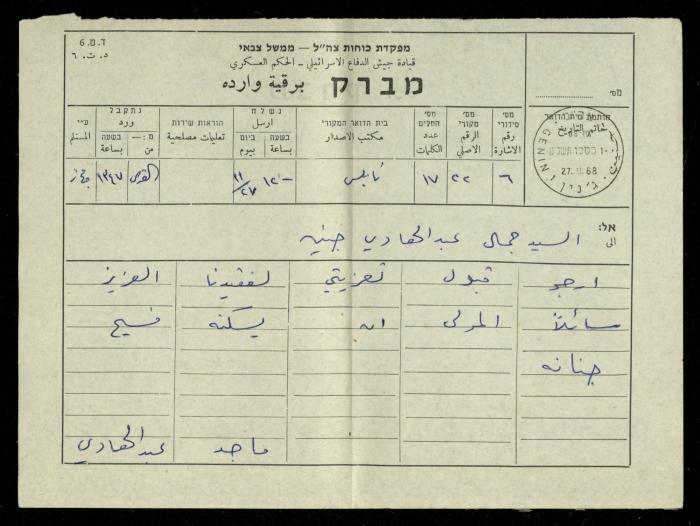 ד.ט.6
د.ت.٦
מפקדת כוחות צה"ל — ממשל צבאי
قيادة جيش الدفاع الاسرائيلي - الحكم العسكري
מברק برقية وارده
מס׳
חותמת בית הדואר
خاتم التاريخ
GENIN
ג׳נין
27.11.68
מס׳ סידורי
رقم الاشارة
٦
מס׳ מקורי
الرقم الاصلي
٢٢
מס׳ המלים
عدد الكلمات
١٧
בית הדואר המקורי
مكتب الاصدار
نابلس
נשלח
ارسل
בשעה
بساعة
١٢٠٠
ביום
بيوم
٢٧/١١
הוראות שירות
تعليمات مصلحية
נתקבל
ورد
מ:
من
القدس
בשעה
بساعة
١٣٤٧
ע״י
المستلم
אל:
الى
السيد جمال عبد الهادي جنين
ارجو قبول تعزيتي لفقيدنا العزيز
سائلاً المولى ان يسكنه فسيح
جنانه
ماجد عبد الهادي